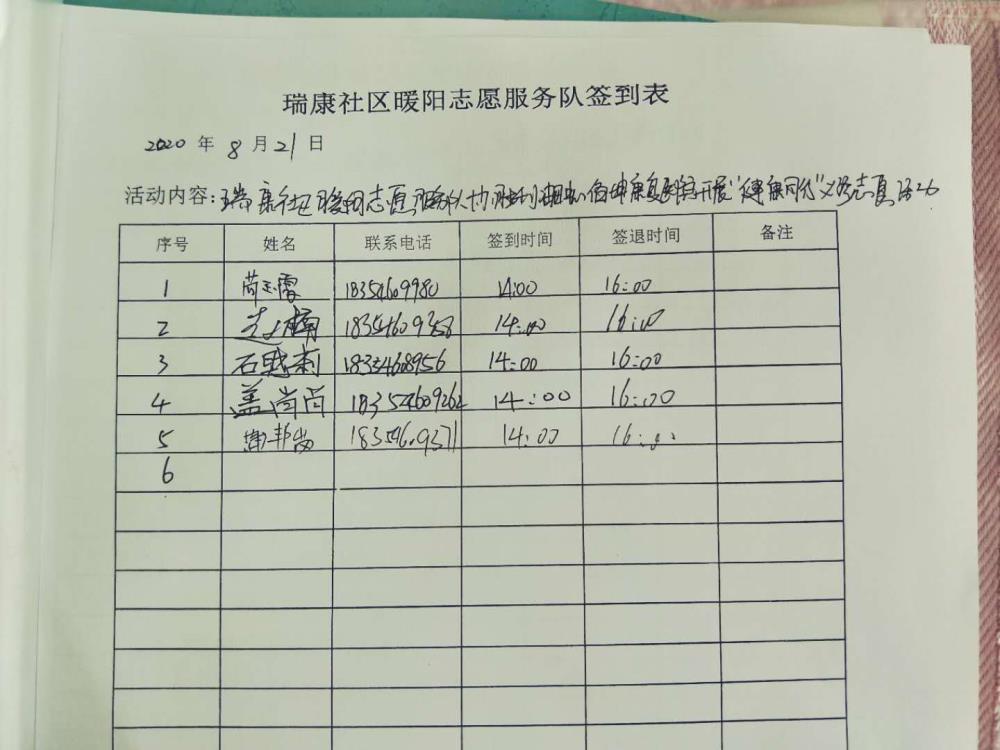 瑞康社区暖阳志愿服务队签到表
2020 年 8 月 21 日
活动内容:瑞康社区暖阳志愿服务队协 康复医院开展"健康同行"义诊志愿活动
序号 姓名 联系电话 签到时间 签退时间 备注
1 18354609980 14:00 16:00
2 14:00 16:00
3 石 莉 18354608956 14:00 16:00
4 盖尚尚 18354609262 14:00 16:00
5 14:00 16:00
6